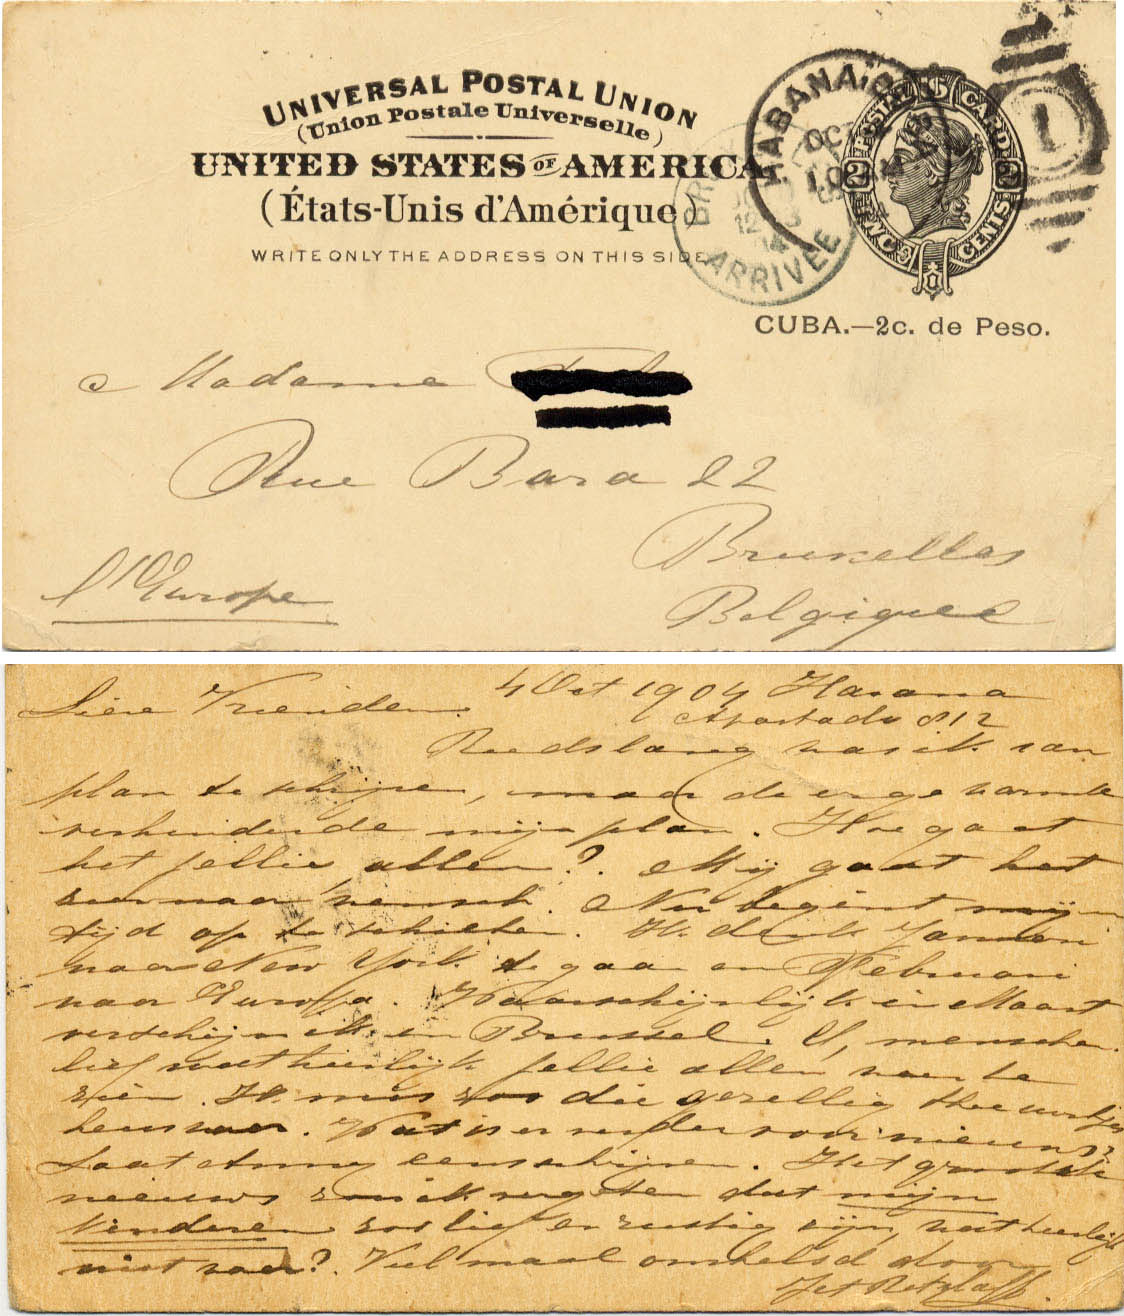 UNIVERSAL POSTAL UNION
(Union Postale Universelle)
UNITED STATES OF AMERICA.
(États-Unis d'Amérique)
WRITE ONLY THE ADDRESS ON THIS SIDE
HABANA
OCT
ARRIVÉE
1
POSTAL CARD
2 2
CENTS
CUBA.—2c. de Peso.
Madame
Rue Bara 22
Bruxelles
Belgique
l'Europe
4 Oct 1904 Havana
Apartado 812
Lieve Vrienden.
Reeds lang was ik van
plan te schrijven, maar de erge warmte
verhinderde mijn plan. Hoe gaat
het jellie allen? Mij gaat het
naar wensch. Nu begint mijn
tijd op te schieten. Ik denk Januari
naar New York te gaan en Februari
naar Europa. Waarschijnlijk in Maart
verschijn ik in Brussel. O, menschen
lief wat heerlijk jellie allen weer te
zien. Ik mis zoo die gezellig thee uurtjes
Wat is er verder voor nieuws?
Laat Anny eens schrijven. Het grootste
nieuws zou ik vergeten dat mijn
kinderen zoo lief en rustig zijn, wat heerlijk
niet waar? Veel maal omhelsd door
Jet Retzlaff.